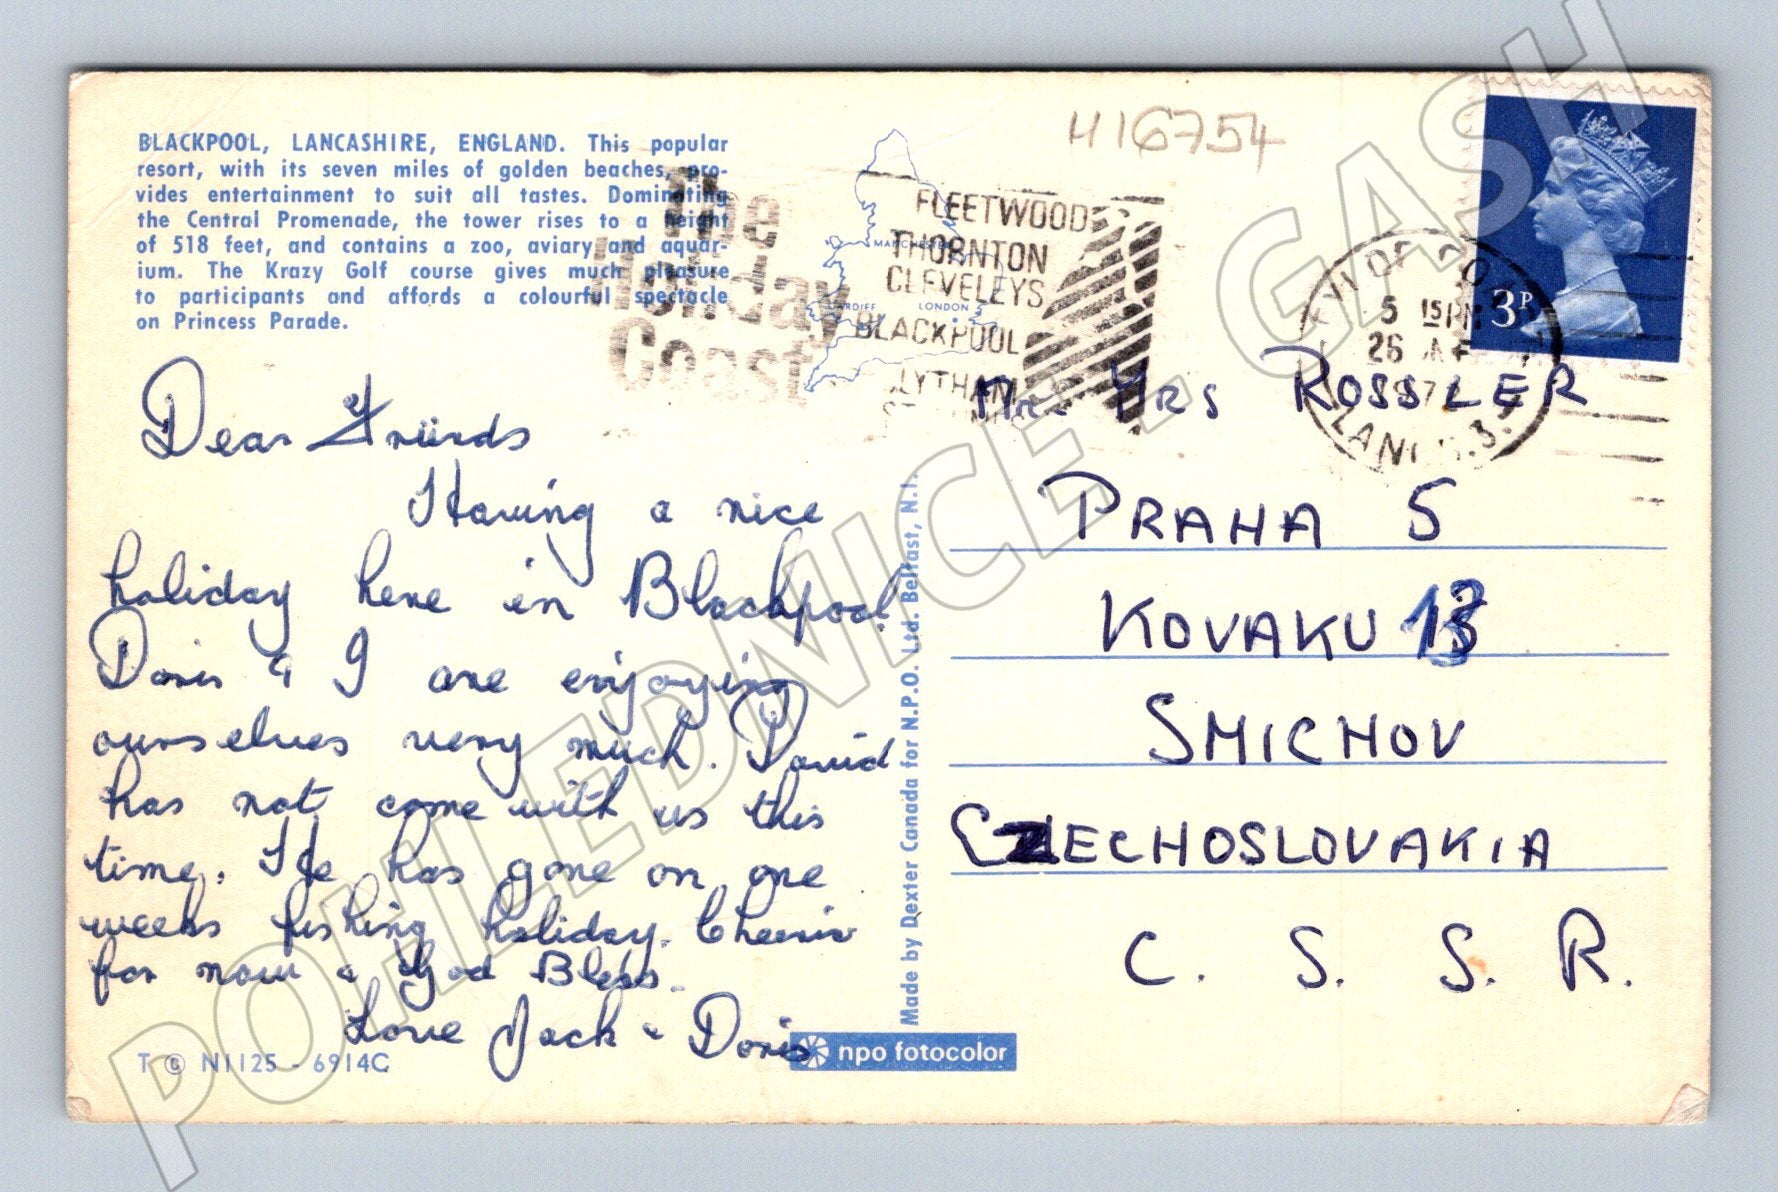 BLACKPOOL, LANCASHIRE, ENGLAND. This popular
resort, with its seven miles of golden beaches, pro-
vides entertainment to suit all tastes. Dominating
the Central Promenade, the tower rises to a height
of 518 feet, and contains a zoo, aviary and aquar-
ium. The Krazy Golf course gives much pleasure
to participants and affords a colourful spectacle
on Princess Parade.
The
Holiday
Coast
H16754
FLEETWOOD
THORNTON
CLEVELEYS
BLACKPOOL
LYTHAM
MANCHESTER
CARDIFF LONDON
5 15 PM
26
LANCS.
3P
Dear Friends
Having a nice
holiday here in Blackpool
Doris & I are enjoying
ourselves very much. David
has not come with us this
time. He has gone on one
weeks fishing holiday. Cheerio
for now & God Bless.
Love Jack & Doris
T © N1125 - 6914C
Made by Dexter Canada for N.P.O. Ltd. Belfast, N.I.
npo fotocolor
Mr. Mrs ROSSLER
PRAHA 5
KOVAKU
SMICHOV
CZECHOSLOVAKIA
C. S. S. R.
POHLEDNICE - GASH